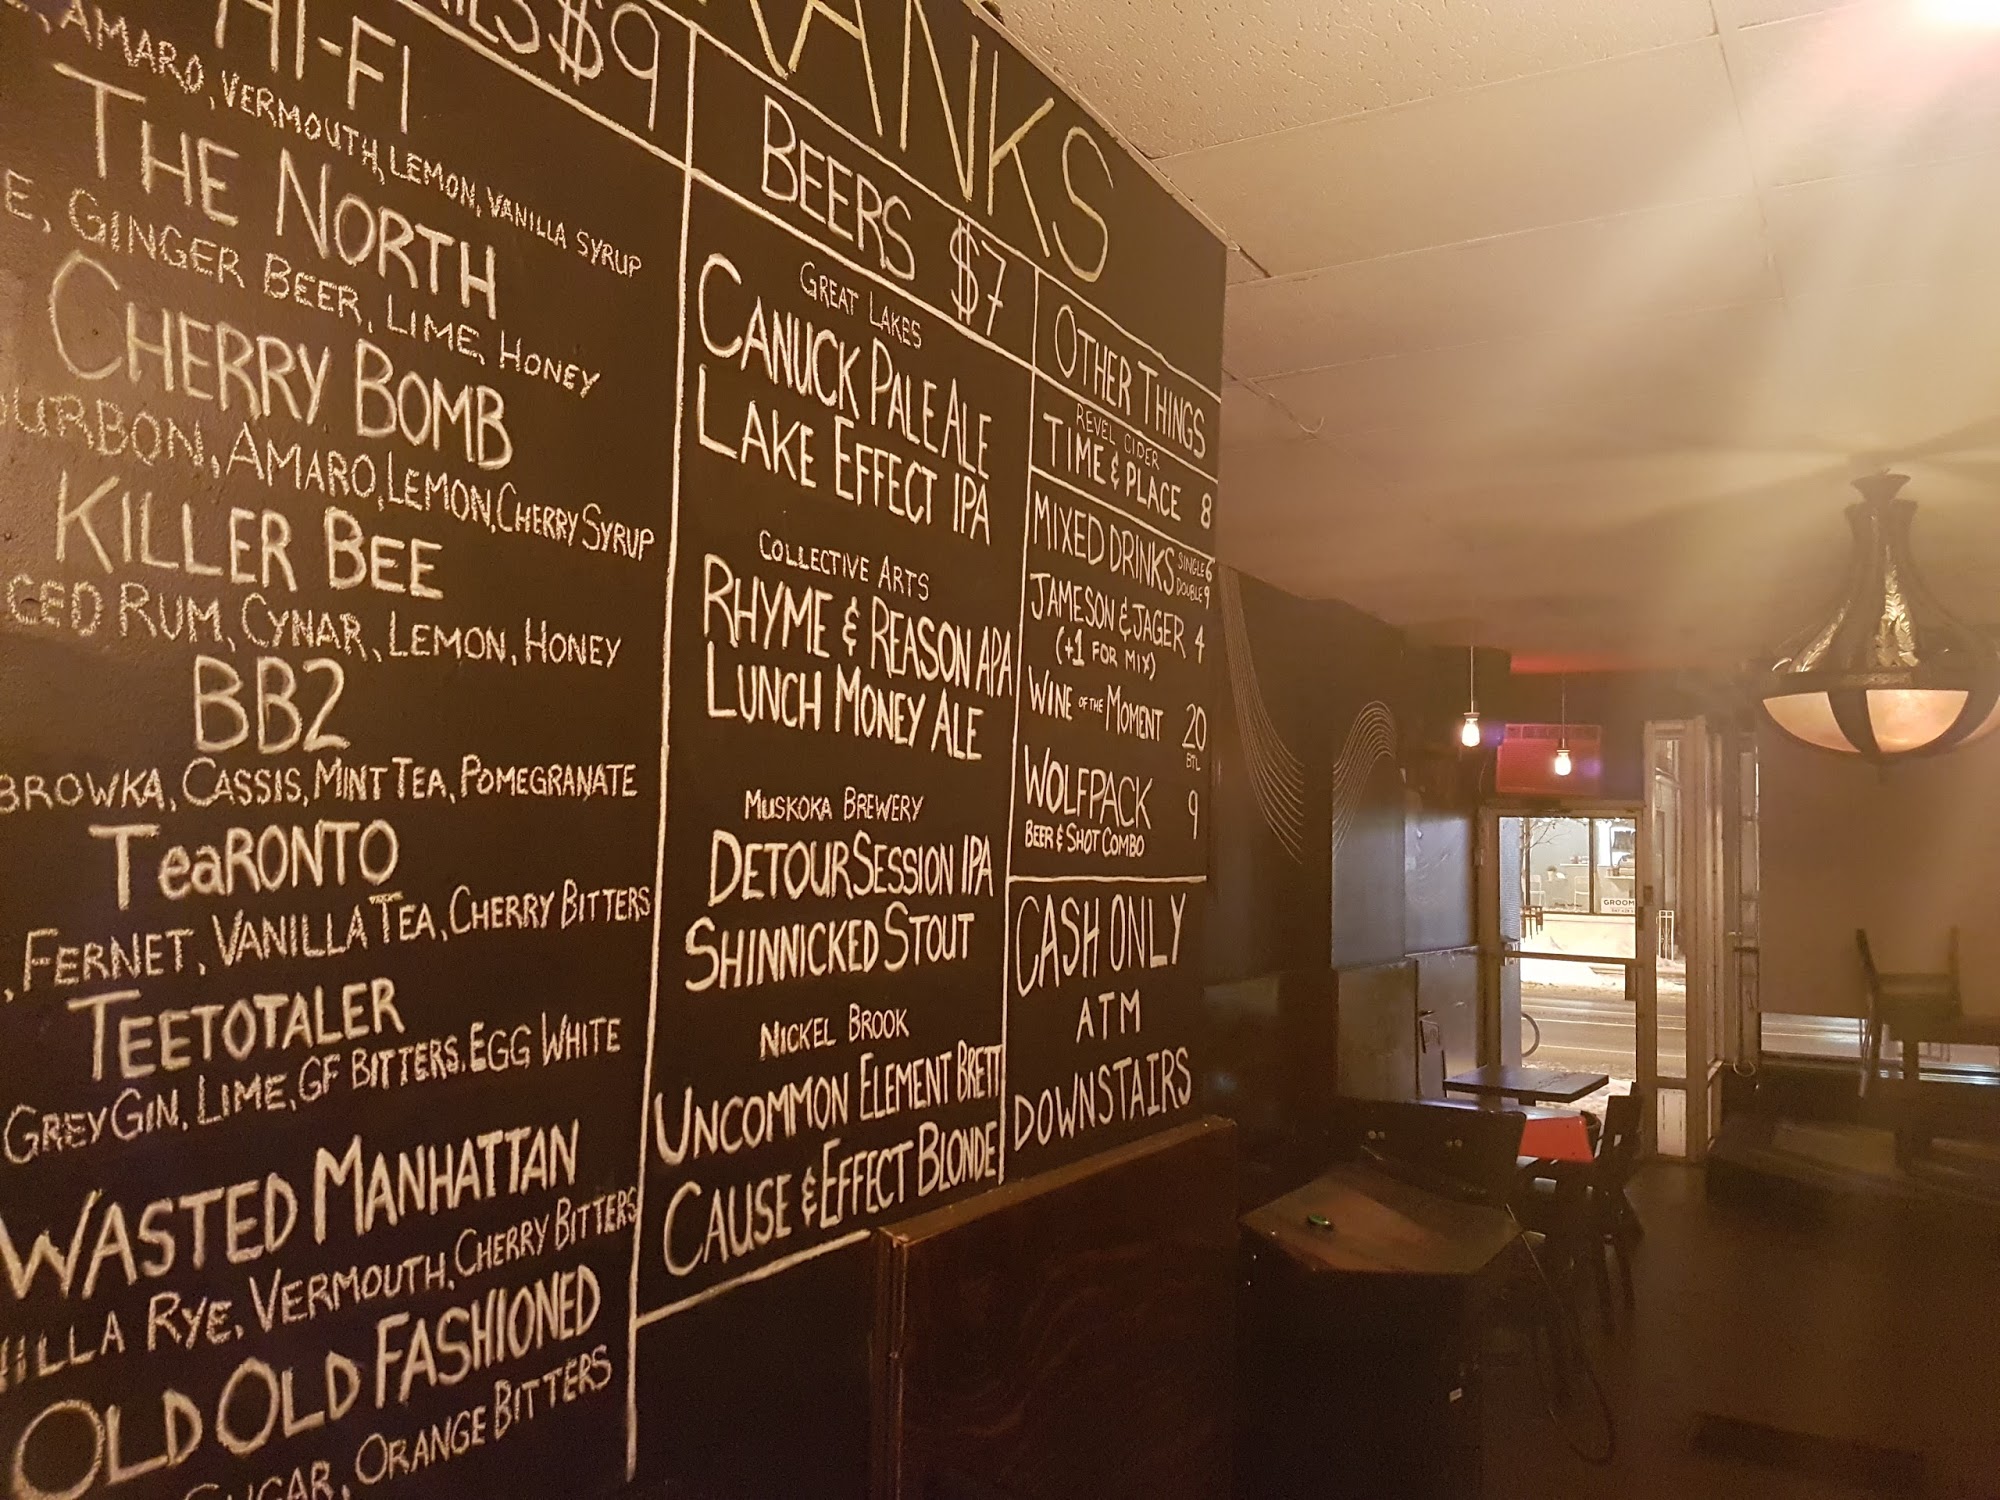 RANKS
$9
HI-FI
AMARO, VERMOUTH, LEMON, VANILLA SYRUP
THE NORTH
GINGER BEER, LIME, HONEY
CHERRY BOMB
AMARO, LEMON, CHERRY SYRUP
KILLER BEE
RUM, CYNAR, LEMON, HONEY
BB2
CASSIS, MINT TEA, POMEGRANATE
TeaRONTO
, FERNET, VANILLA TEA, CHERRY BITTERS
TEETOTALER
GREY GIN, LIME, GF BITTERS, EGG WHITE
WASTED MANHATTAN
RYE, VERMOUTH, CHERRY BITTERS
OLD OLD FASHIONED
SUGAR, ORANGE BITTERS
BEERS $7
GREAT LAKES
CANUCK PALE ALE
LAKE EFFECT IPA
COLLECTIVE ARTS
RHYME & REASON APA
LUNCH MONEY ALE
MUSKOKA BREWERY
DETOUR SESSION IPA
SHINNICKED STOUT
NICKEL BROOK
UNCOMMON ELEMENT BRETT
CAUSE & EFFECT BLONDE
OTHER THINGS
REVEL CIDER
TIME & PLACE 8
MIXED DRINKS SINGLE 6
DOUBLE 9
JAMESON & JAGER 4
(+1 FOR MIX)
WINE OF THE MOMENT 20
BTL
WOLFPACK 9
BEER & SHOT COMBO
CASH ONLY
ATM
DOWNSTAIRS
GROOM